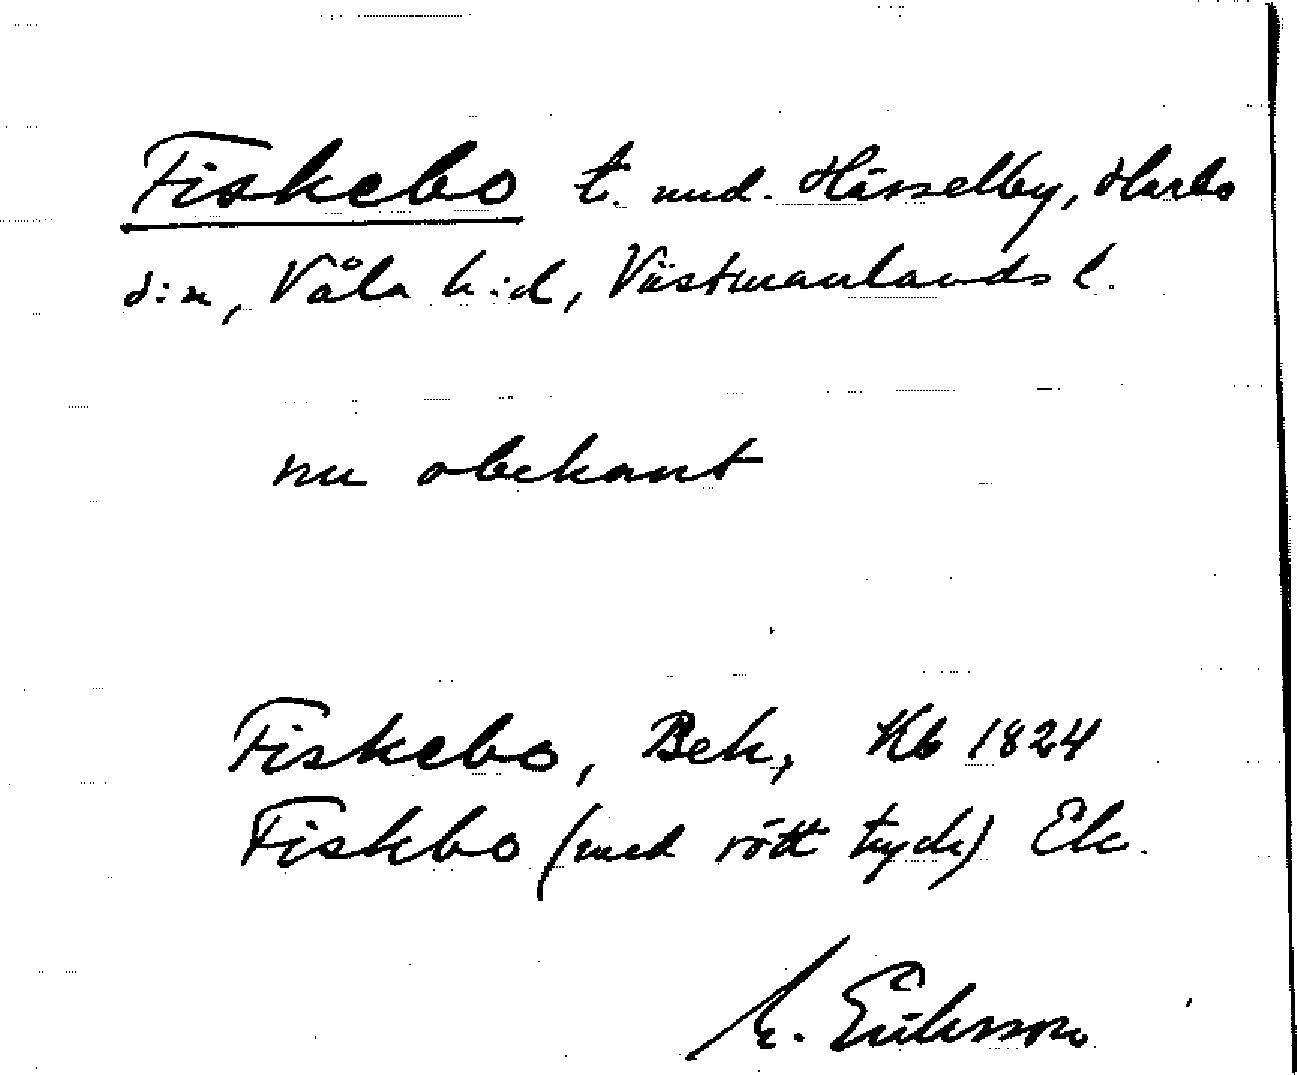 Fiskebo t. und. Hässelby, Harbo
s:n, Våla h:d, Västmanlands l.
nu obekant
Fiskebo, Bek, Kb 1824
Fiskbo (med rött tryck) Ek.
Eriksson